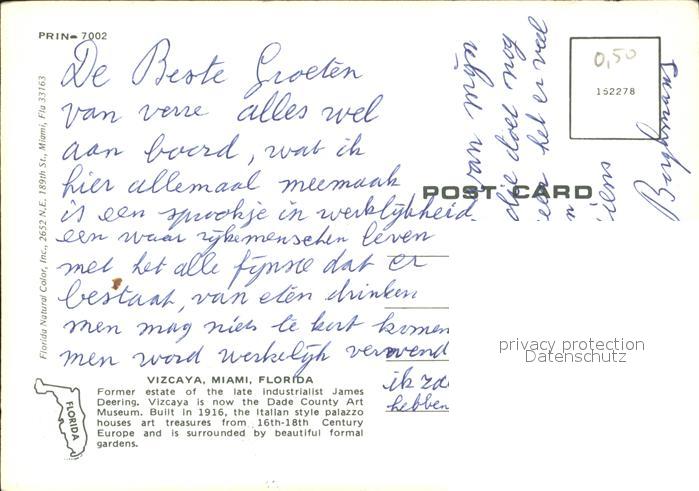 PRIN- 7002
De Beste Groeten
van verre alles wel
aan boord, wat ik
hier allemaal meemaak
is een sprookje in werkelijkheid.
een waar rijkemenschen leven
met het alle fijnste dat er
bestaat, van eten drinken
men mag niets te kort komen
men word werkelijk verwend
ik zo
hebben
van mijn
die doet nog
een het er veel
POST CARD
0,50
152278
privacy protection
Datenschutz
Florida Natural Color, Inc., 2652 N.E. 189th St., Miami, Fla 33163
VIZCAYA, MIAMI, FLORIDA
Former estate of the late industrialist James
Deering. Vizcaya is now the Dade County Art
Museum. Built in 1916, the Italian style palazzo
houses art treasures from 16th-18th Century
Europe and is surrounded by beautiful formal
gardens.
FLORIDA